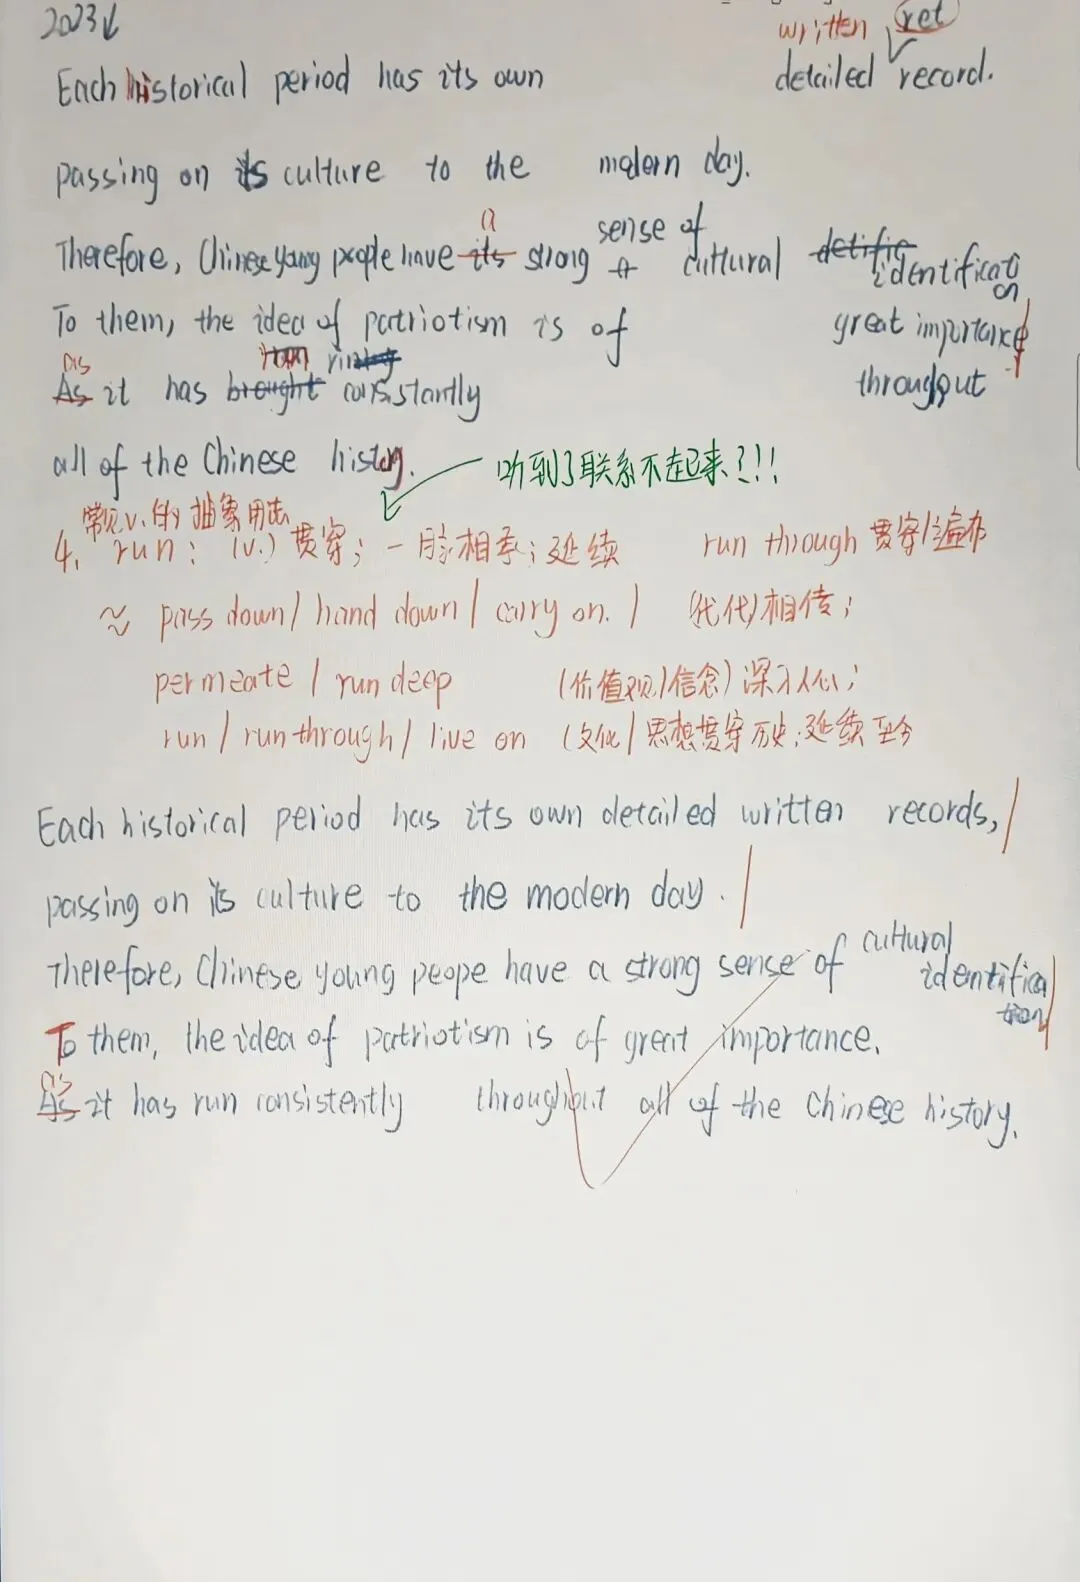 2023↓
written ret
Each historical period has its own detailed record.
passing on its culture to the modern day.
a sense of
Therefore, Chinese young people have its strong cultural detific identification
To them, the idea of patriotism is of great importance
as run
As it has brought consistantly throughout
all of the Chinese history.
听到了联系不起来?!!!
常见v.的抽象用法
4. run: (v.) 贯穿; 一脉相承; 延续 run through 贯穿/遍布
≈ pass down / hand down / carry on. / (代代)相传;
permeate / run deep (价值观/信念) 深入人心;
run / run through / live on (文化/思想贯穿历史;延续至今
Each historical period has its own detailed written records, /
passing on its culture to the modern day. /
Therefore, Chinese young peope have a strong sense of cultural identification
To them, the idea of patriotism is of great importance.
as
As it has run consistently throughout all of the Chinese history.